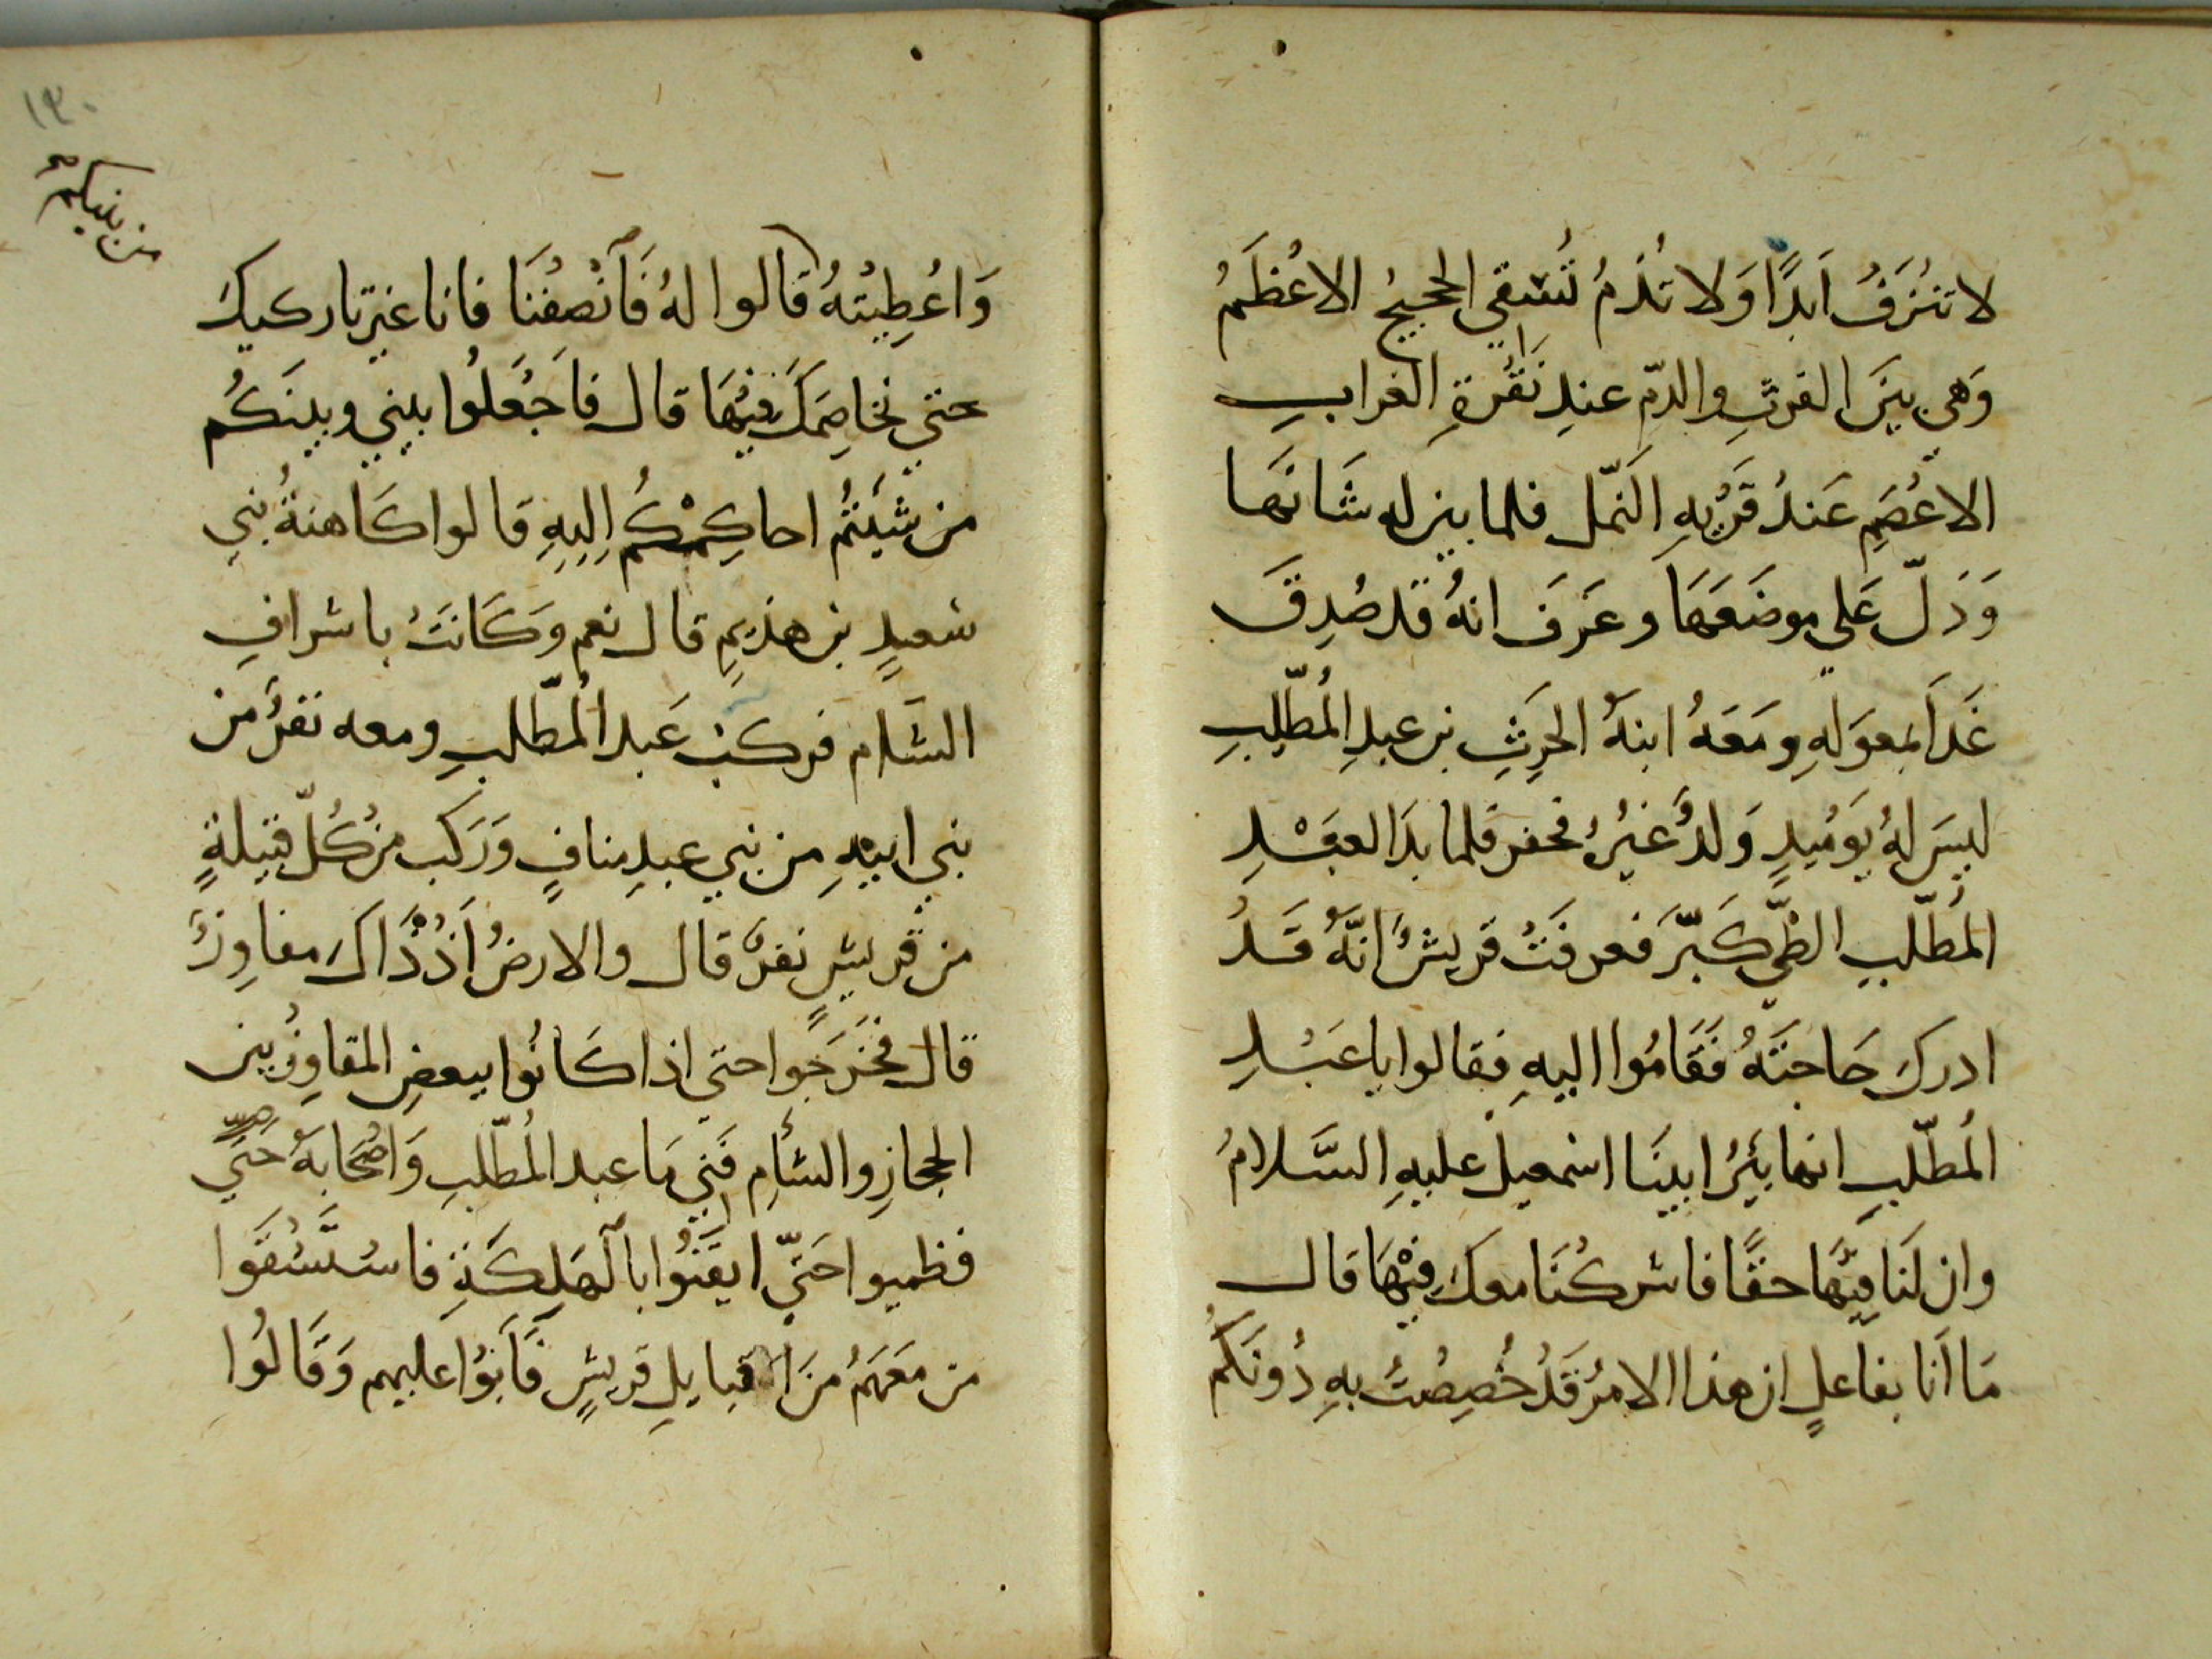 لا تنُزَفُ اَبدًا وَلا تُذمُ تُسقي الحجيجُ الاعْظَمُ
وَهي بينَ الفرثِ والدّمِ عندِ نَقْرةِ الغرابِ
الاعْصَمِ عَندُ قَرْيهِ النّمل فلما بين له شَانَها
وَدَلّ عَلي موضَعَهَا وعَرَفَ انهُ قد صُدِقَ
غَدَا بمعوَلهِ ومَعَهُ ابنهُ الحرِثِ بن عبدِ المُطّلِبِ
ليسَ لهُ يَوَمُيدٍ وَلدٌ غيُرُ فحفر فلما بدَا لعبْدِ
المُطّلبِ الطّي كَبّرَ فعرفَتْ قريشٌ انّهُ قَدْ
ادركَ حَاجتَهُ فَقَامُوا اليهِ فقالوا يا عَبْدِ
المُطّلبِ انها بئيرُ ابينَا اسْمعيل عليهِ السَّلامُ
وان لَنَا فيَّها حقًا فاشركْنَا معكَ فيْهَا قال
مَا اَنا بفاعلٍ ان هذا الامرُ قَدْ خُصِصْتُ بهِ دُونَكُمُ
١٣٠
من بينكم
وَاعُطِيْتهُ قالوا لهُ فَآنْصفْنَا فانا غير تاركيكَ
حتي نخاصِمَكَ فيْهَا قال فاجَعَلُوا بيني وبينَكُم
من شيْتُم احاكِمْكُم اِليهِ قالوا كَاهنةُ بني
سَعدٍ بن هذيمِ قال نعم وَكَانَتْ باشرافِ
الشَام فركبَ عَبد المُطّلبِ ومعه نفرٌ من
بني ابيْهِ من بني عبدِ منافٍ وَرَكبَ من كُلّ قبيلةٍ
من قريشٍ نفرٌ قال والارضُ اَذْذَّاكَ مفاوِزُ
قال فخَرَجَوا حتي اذا كَانُوا ببعضِ المفاوِزُ بين
الحجازِ والشأمِ فَني مَا عبد المُطّلبِ وَاصْحَابهُ حَتَي
فظميوا حَتّي ايقَنْوا بالهَلكَةِ فاسْتَّسُقَوا
من مَعَهَمُ مِنَ قبايلِ قريشٍ فَّابَوُا عليهم وَقَالُوا